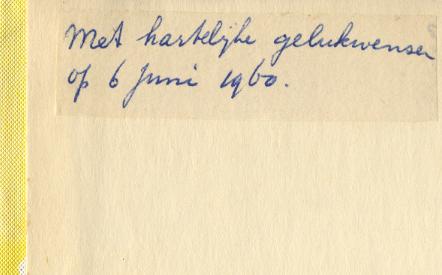 Met hartelijke gelukwensen
op 6 Juni 1960.